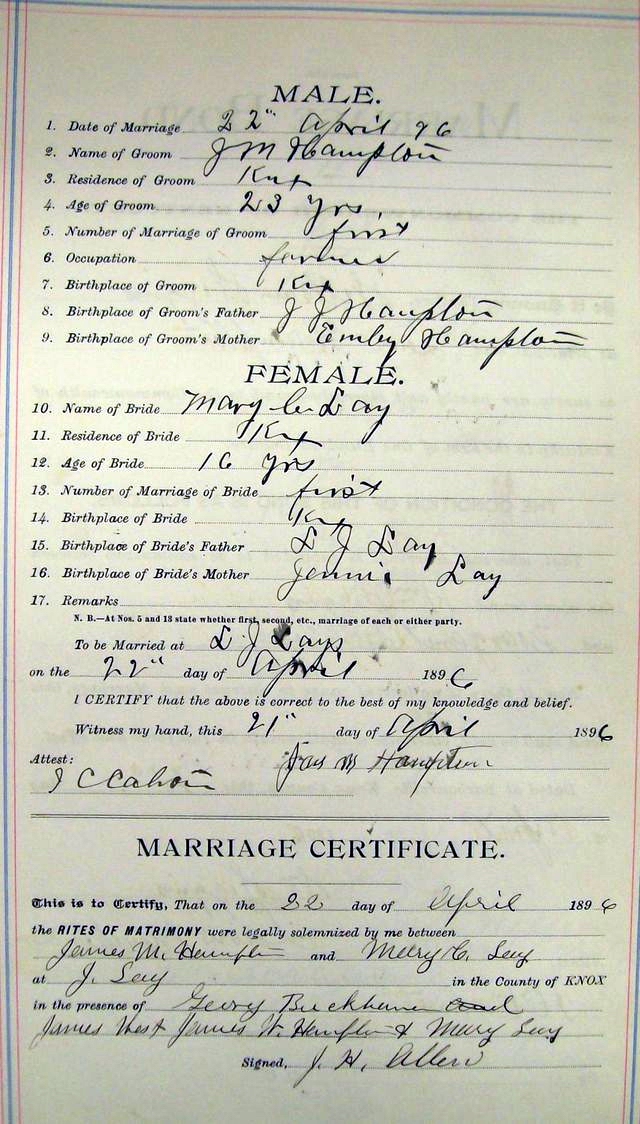 MALE.
1. Date of Marriage 22" April 96
2. Name of Groom J M Hampton
3. Residence of Groom Knx
4. Age of Groom 23 yrs,
5. Number of Marriage of Groom first
6. Occupation farmer
7. Birthplace of Groom Knx
8. Birthplace of Groom's Father J J Hampton
9. Birthplace of Groom's Mother Emley Hampton
FEMALE.
10. Name of Bride Mary C. Lay
11. Residence of Bride Knx
12. Age of Bride 16 yrs
13. Number of Marriage of Bride first
14. Birthplace of Bride Knx
15. Birthplace of Bride's Father L J Lay
16. Birthplace of Bride's Mother Jennie Lay
17. Remarks
N. B.—At Nos. 5 and 13 state whether first, second, etc., marriage of each or either party.
To be Married at L J Lays
on the 22" day of April 1896
I CERTIFY that the above is correct to the best of my knowledge and belief.
Witness my hand, this 21" day of April 1896
Attest: Jas M Hampton
J C Cahon
MARRIAGE CERTIFICATE.
This is to Certify, That on the 22 day of April 1896
the RITES OF MATRIMONY were legally solemnized by me between
James M. Hampton and Mary C. Lay
at J. Lay in the County of KNOX
in the presence of Georg Buckhanan and
James West James W. Hampton & Mary Lay
Signed, J. H. Allen